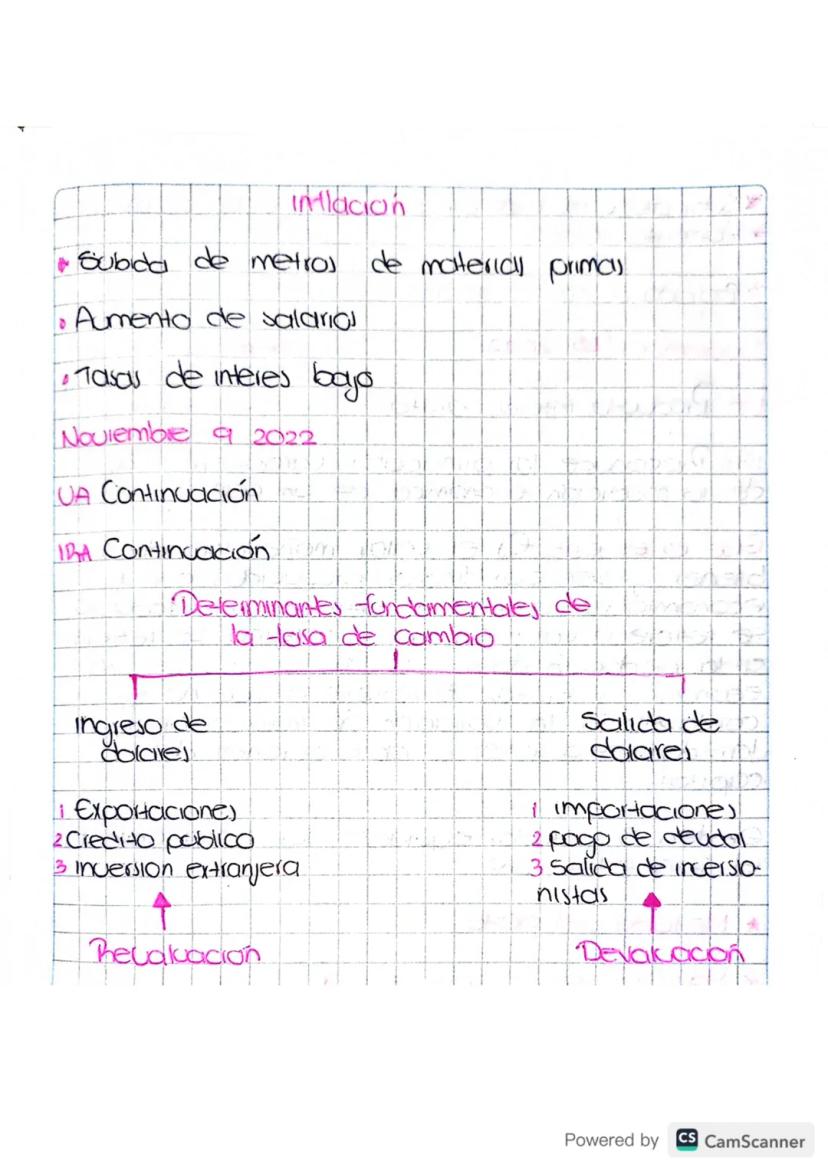 Inflación
• Subida de metros de materias primas
• Aumento de salarios
• Tasas de interes bajo
Noviembre 9 2022
UA Continuación
IDA Continuación
Determinantes fundamentales de
la tasa de cambio
Ingreso de
dolares
Salida de
dolares
1 Exportaciones
2 Credito publico
3 inversion extranjera
1 importaciones
2 pago de deudas
3 Salida de inversio-
nistas
Revaluación
Devaluación
Powered by CS CamScanner